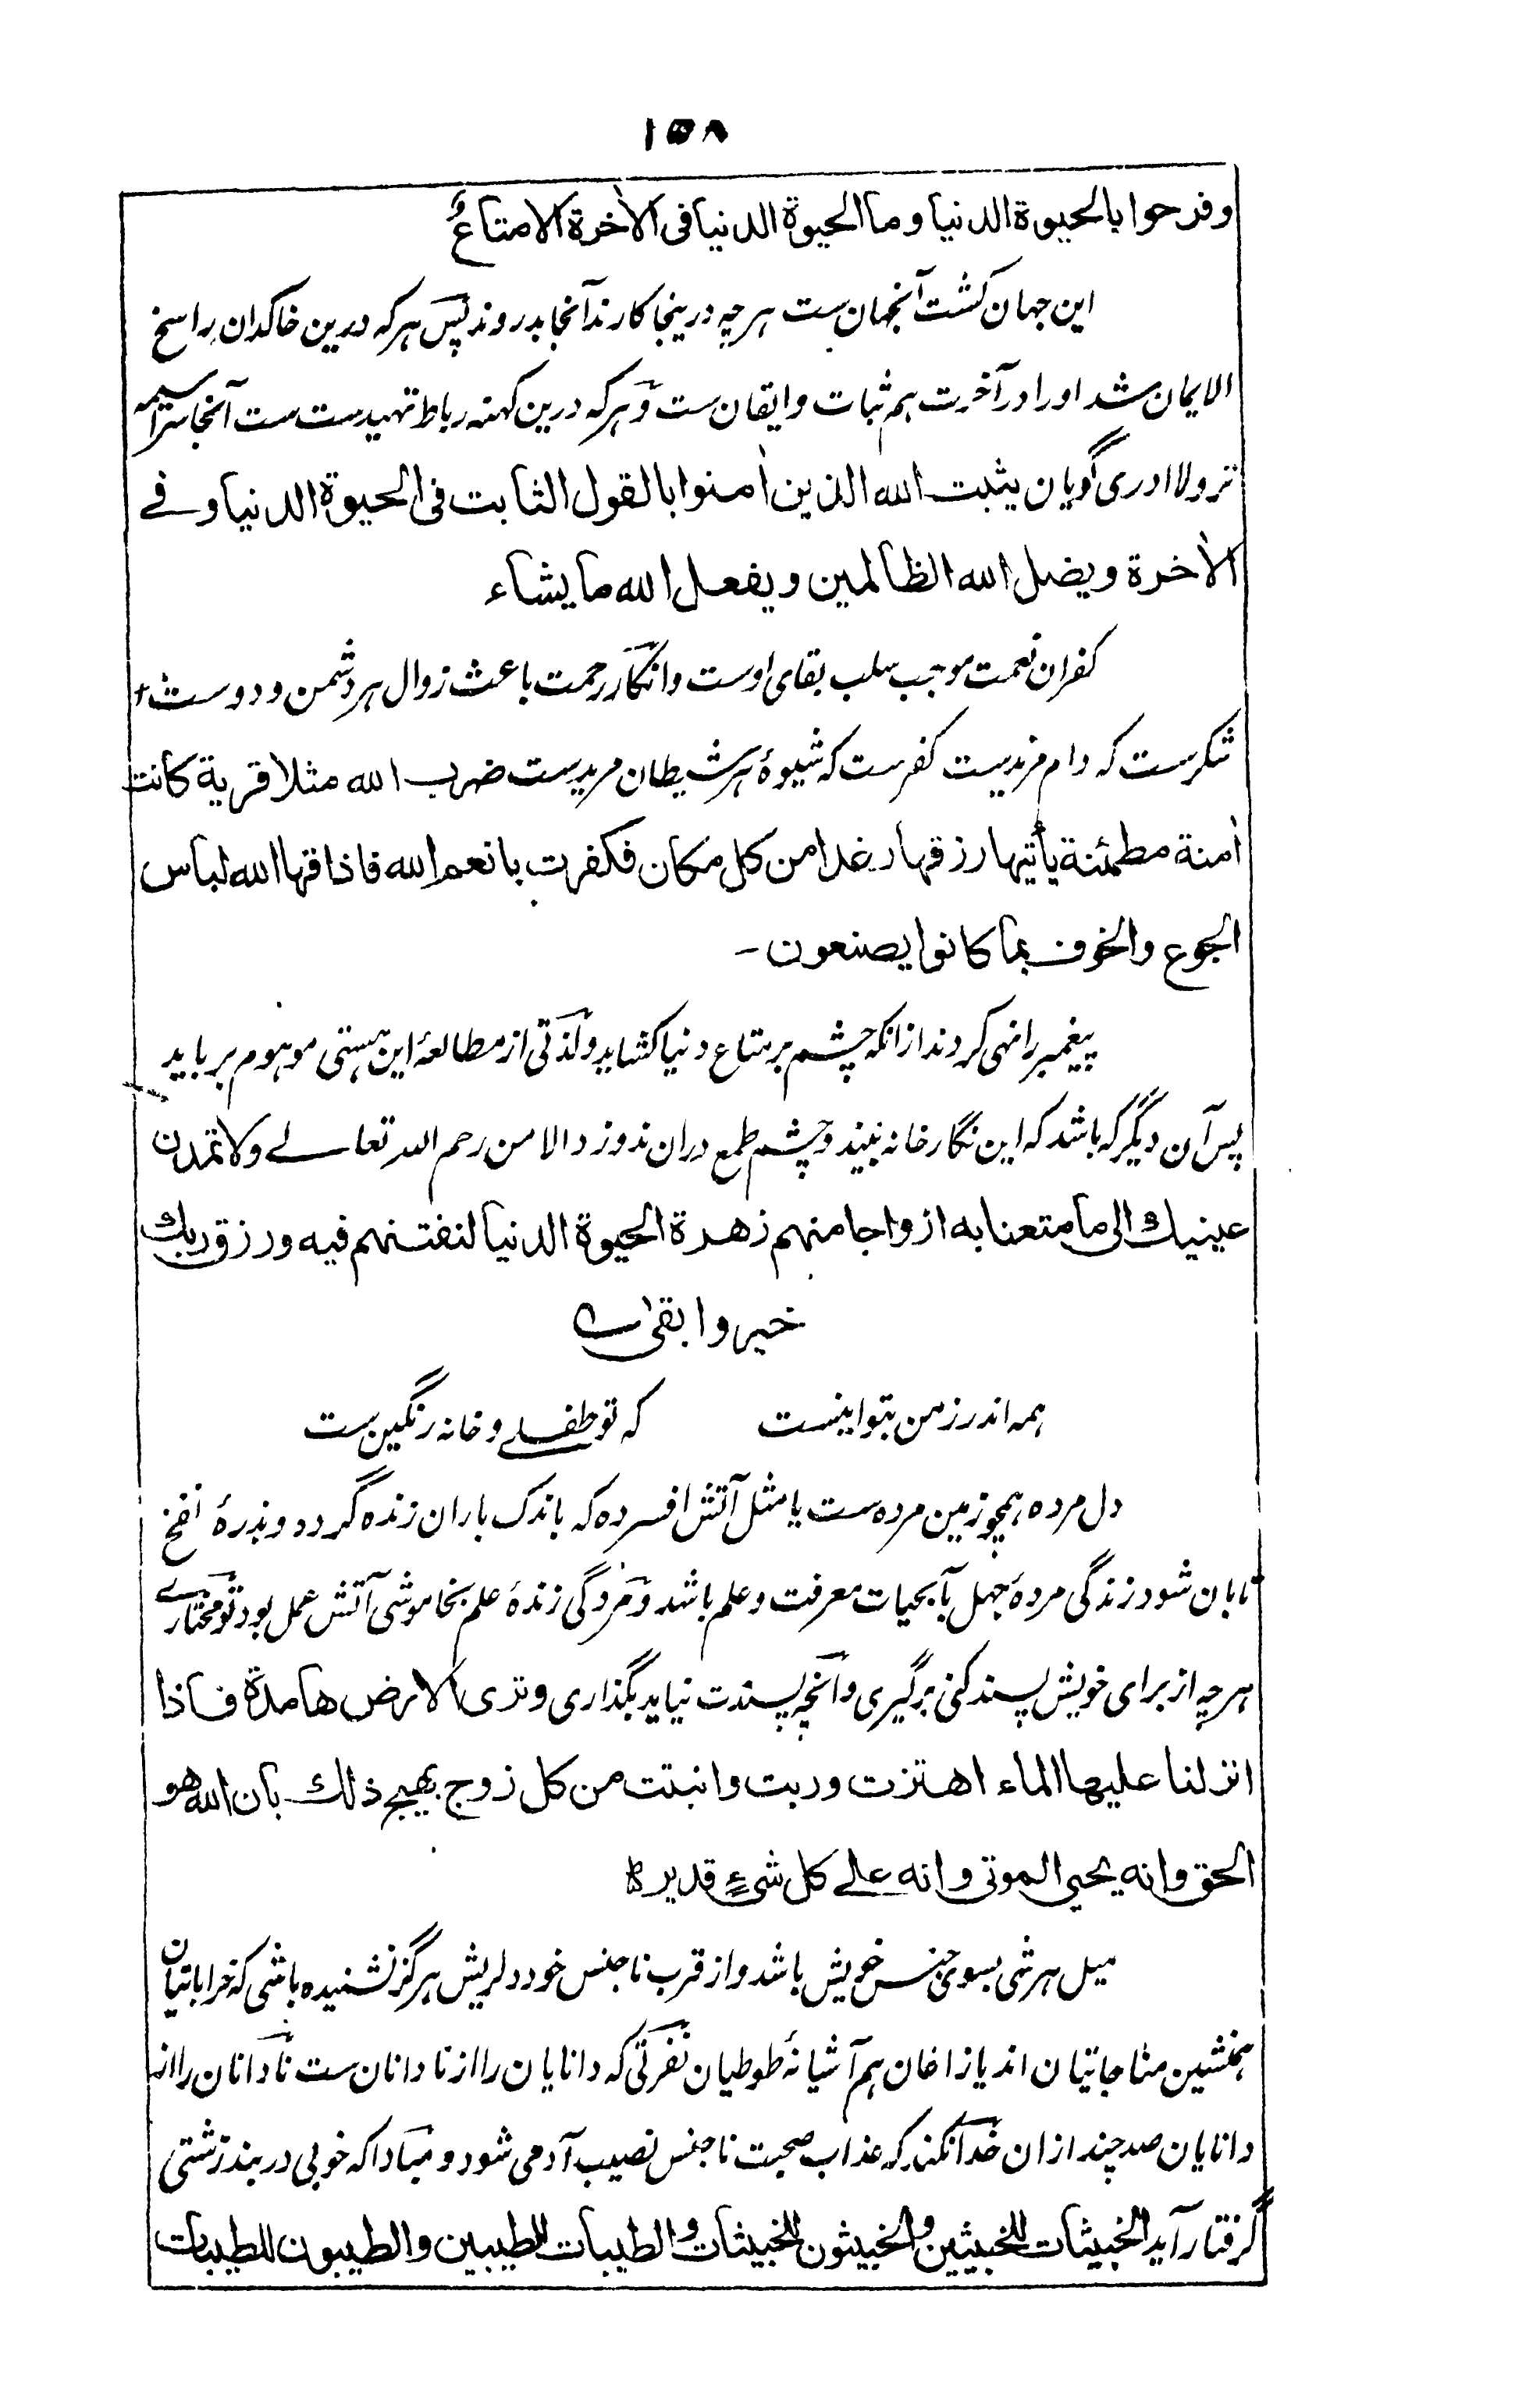 ۱۵۸
وفرحوا بالحيوة الدنيا وما الحيوة الدنيا فى الاٰخرة الا متاعٌ
این جهان کشت آنجهان ست هرچه درینجا کارند آنجا بدروند پس هرکه درین خاکدان راسخ
الایمان شد او را در آخرت هم ثبات و ایقان ست و هرکه درین کهنه رباط تهیدست ست آنجا سراسیمه
تر ولا ادری گویان يثبت الله الذين اٰمنوا بالقول الثابت فى الحيوة الدنيا وفے
الاٰخرة ويضل الله الظالمين ويفعل الله ما يشاء
کفران نعمت موجب سلب بقای اوست و انکار رحمت باعث زوال هر دشمن و دوست
شکرست که دام مزیدست کفرست که شیوهٔ هر شیطان مریدست ضرب الله مثلا قرية كانت
اٰمنة مطمئنة يأتيها رزقها رغدا من كل مكان فكفرت بانعم الله فاذاقها الله لباس
الجوع والخوف بما كانوا يصنعون -
پیغمبر را نهی کردند از انکه چشم بر متاع دنیا کشاید و لذتی از مطالعهٔ این هستی موهوم برباید
پس آن دیگر که باشد که این نگارخانه بیند و چشم طمع دران ندوزد الا من رحم الله تعالے ولا تمدن
عينيك الى ما متعنا به ازواجا منهم زهرة الحيوة الدنيا لنفتنهم فيه ورزق ربك
خير وابقىٰ ؎
همه اندرز من بتو اینست    که تو طفلے و خانه رنگین ست
دل مرده همچو زمین مرده ست یا مثل آتش افسرده که باندک باران زنده گردد و بذرهٔ نفخ
تابان شود زندگی مردهٔ جهل بآبحیات معرفت و علم باشد و مردگی زندهٔ علم بخاموشی آتش عمل بود تو مختارے
هرچه از برای خویش پسند کنی برگیری و آنچه پسندت نیاید بگذاری وترى الارض هامدة فاذا
انزلنا عليها الماء اهتزت وربت وانبتت من كل زوج بهيج ذلك بان الله هو
الحق وانه يحيى الموتى وانه علے كل شىءٍ قدير ط
میل هر شی بسوی جنس خویش باشد و از قرب ناجنس خود دلریش هرگز نشنیده باشی که خراباتیان
همنشین مناجاتیان اند یا زاغان هم آشیانهٔ طوطیان نفرتی که دانایان را از نادانان ست نادانان را از
دانایان صد چند از ان خدا نکند که عذاب صحبت ناجنس نصیب آدمی شود و مبادا که خوبی در بند زشتی
گرفتار آید الخبيثات للخبيثين والخبيثون للخبيثات والطيبات للطيبين والطيبون للطيبات